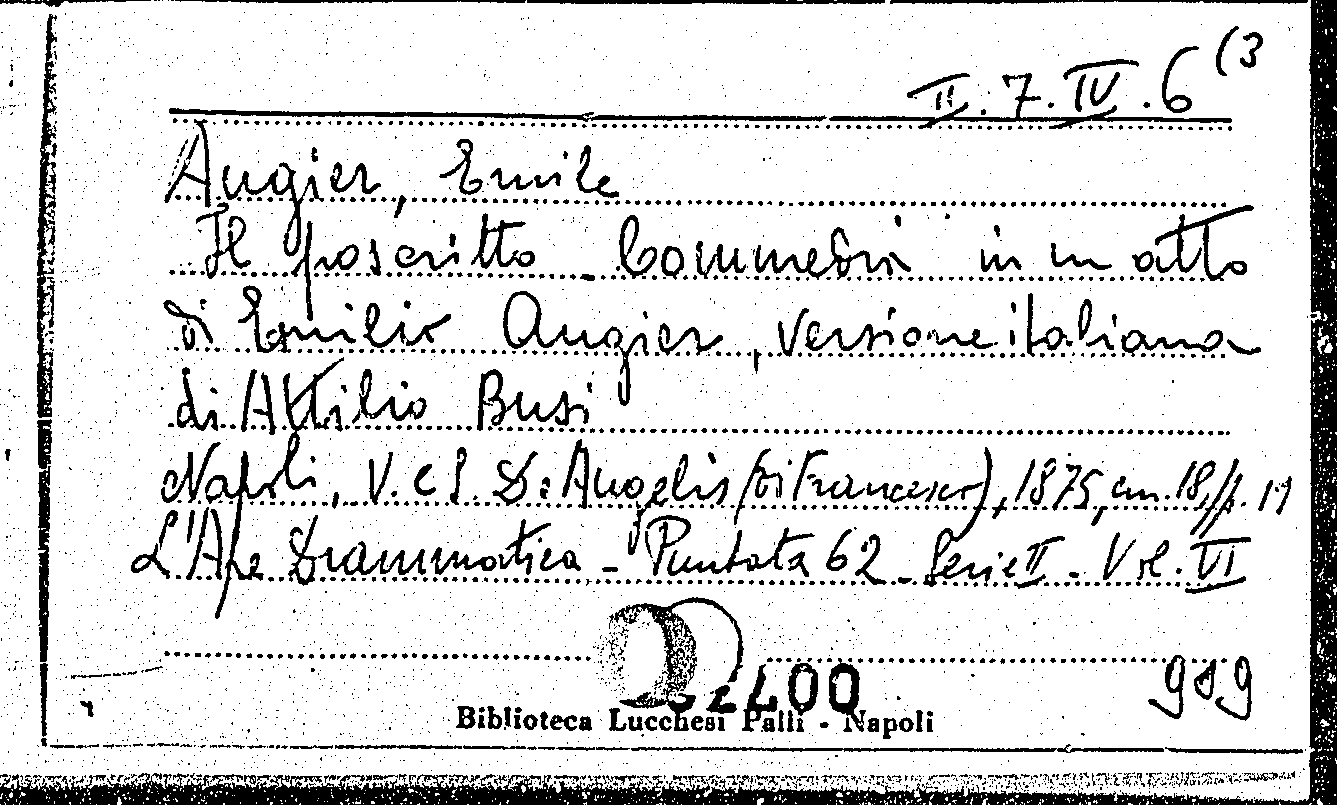 II.7.IV.6(3
Augier, Emile
Il poscritto - Commedia in un atto
di Emilio Augier, versione italiana
di Attilio Busi
Napoli, V. e S. De Angelis (di Francesco), 1875, cm. 18, p. 19
L'Ape Drammatica - Puntata 62 - Serie II - Vol. VI
2400
909
Biblioteca Lucchesi Palli - Napoli